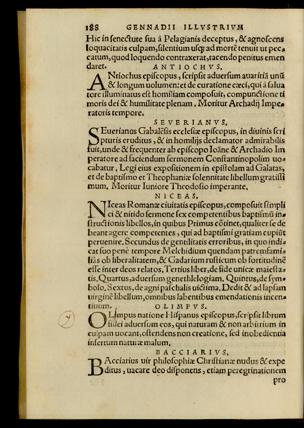 188 GENNADII ILLUSTRIUM
Hic in senectute sua á Pelagianis deceptus, & agnoscens
loquacitatis culpam, silentium usqꝫ ad mortē tenuit ut pec-
catum, quod loquendo contraxerat, tacendo penitus emen
daret.
ANTIOCHVS.
ANtiochus episcopus, scripsit aduersum auaritiā unū
& longum uolumen: et de curatione cæci, qui á salua
tore illuminatus est homiliam composuit, compunctione ti
moris dei & humilitate plenam, Moritur Archadij Impe
ratoris tempore.
SEVERIANVS.
SEuerianus Gabalēsis ecclesiæ episcopus, in diuinis scri
pturis eruditus, & in homilijs declamator admirabilis
fuit, unde & frequenter ab episcopo Ioāne & Archadio Im
peratore ad faciendum sermonem Constantinopolim uo-
cabatur, Legi eius expositionem in epistolam ad Galatas,
et de baptismo et Theophaniæ solennitate libellum gratissi
mum, Moritur Iuniore Theodosio imperante.
NICEAS.
NIceas Romanæ ciuitatis episcopus, composuit simpli
ci & nitido sermone sex competentibus baptismū in-
structionis libellos, in quibus Primus cōtinet, qualiter se de
beant agere competentes, qui ad baptismi gratiam cupiūt
peruenire, Secundus de gentilitatis erroribus, in quo indi-
cat suo penè tempore Melchidium quendam patremfami-
liâs ob liberalitatem, & Gadarium rusticum ob fortitudinē
esse inter deos relatos, Tertius liber, de fide unicæ maiesta-
tis, Quartus, aduersum genethlogiam, Quintus, de sym-
bolo, Sextus, de agni paschalis uictima, Dedit & ad lapsam
uirginē libellum, omnibus labentibus emendationis incen-
titiuum.
OLIMPVS.
OLimpus natione Hispanus episcopus, scripsit librum
fidei aduersum eos, qui naturam & non arbitrium in
culpam uocant, ostendens non creatione, sed inobedientia
insertum naturæ malum.
BACCIARIVS.
BAcciarius uir philosophiæ Christianæ nudus & expe
ditus, uacare deo disponens, etiam peregrinationem
pro